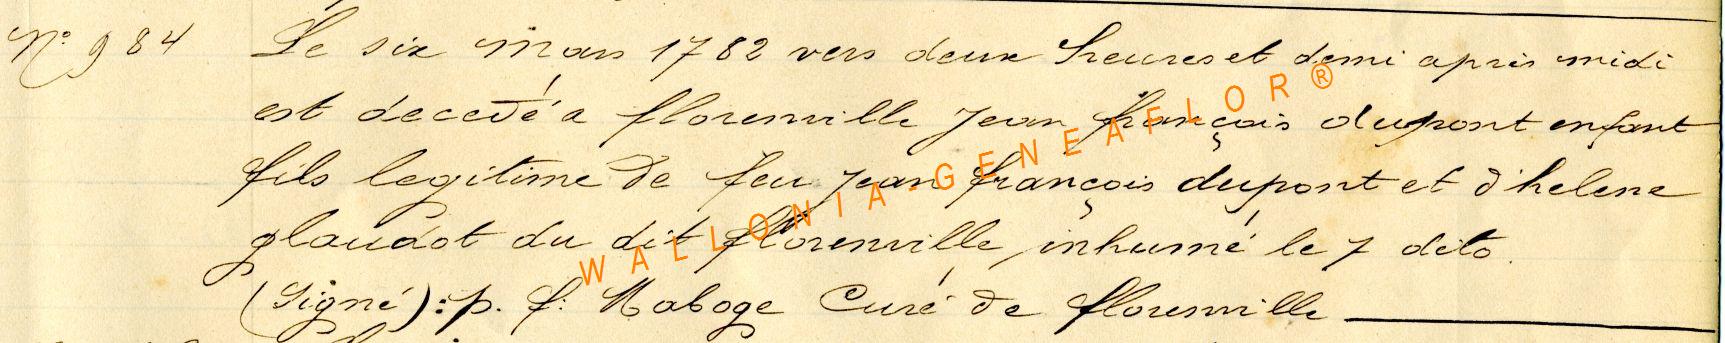 N° 984 Le six Mars 1782 vers deux heures et demi après midi
est decedé a florenville Jean françois dupont enfant
fils legitime de feu Jean françois dupont et d'helene
glaudot du dit florenville, inhumé le 7 dito.
(Signé): p. f: Maboge Curé de florenville
WALLONIA-GENEAFLOR®